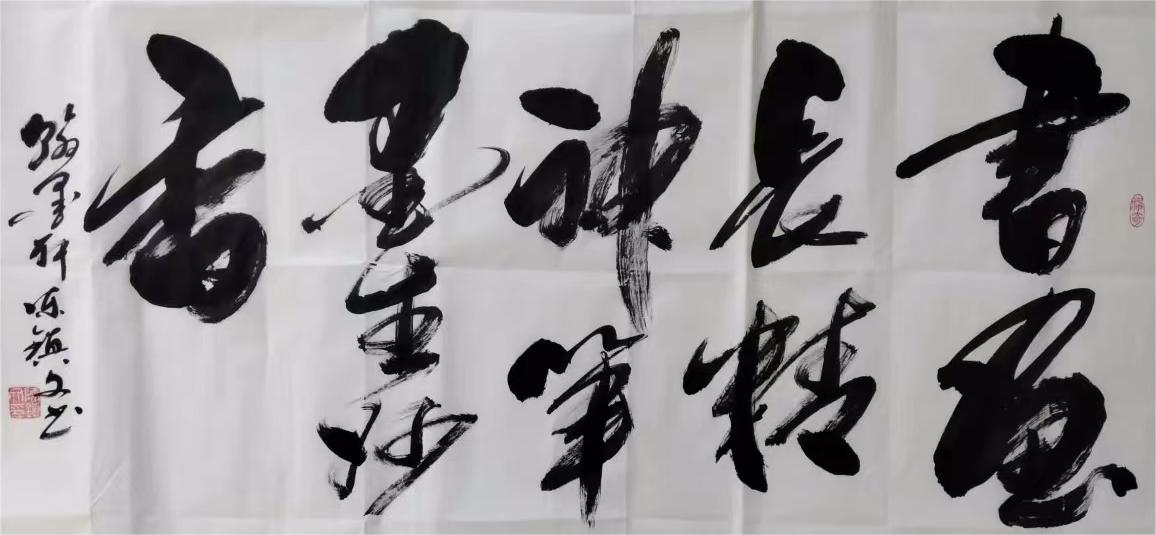 書畫
長精
神筆
墨生妙
香
翰墨軒陈鎮文书